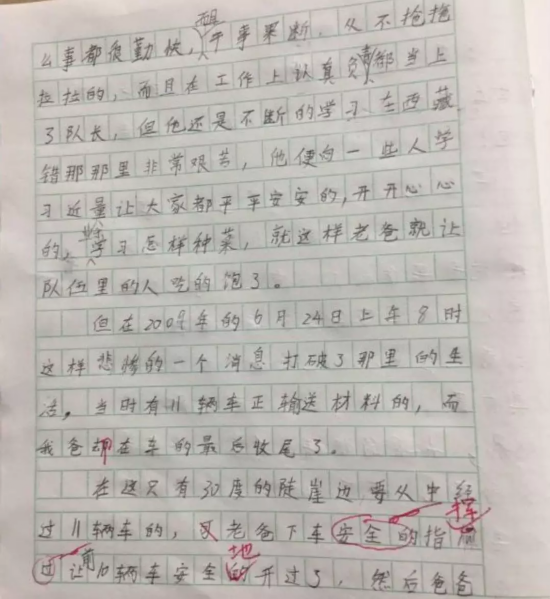 么事都很勤快,而且干事果断,从不拖拖
拉拉的,而且在工作上认真负责都当上
了队长,但他还是不断的学习在西藏
错那那里非常艰苦,他便向一些人学
习近量让大家都平平安安的,开开心心
的,学习怎样种菜,就这样老爸就让
队伍里的人吃的饱了。
但在2009年的6月24日上午8时
这样悲惨的一个消息打破了那里的生
活,当时有11辆车正输送材料的,而
我爸却在车的最后收尾了。
在这只有30度的陡崖边要从中经
过11辆车的,老爸下车安全的指挥
过让前10辆车安全地的开过了,然后爸爸